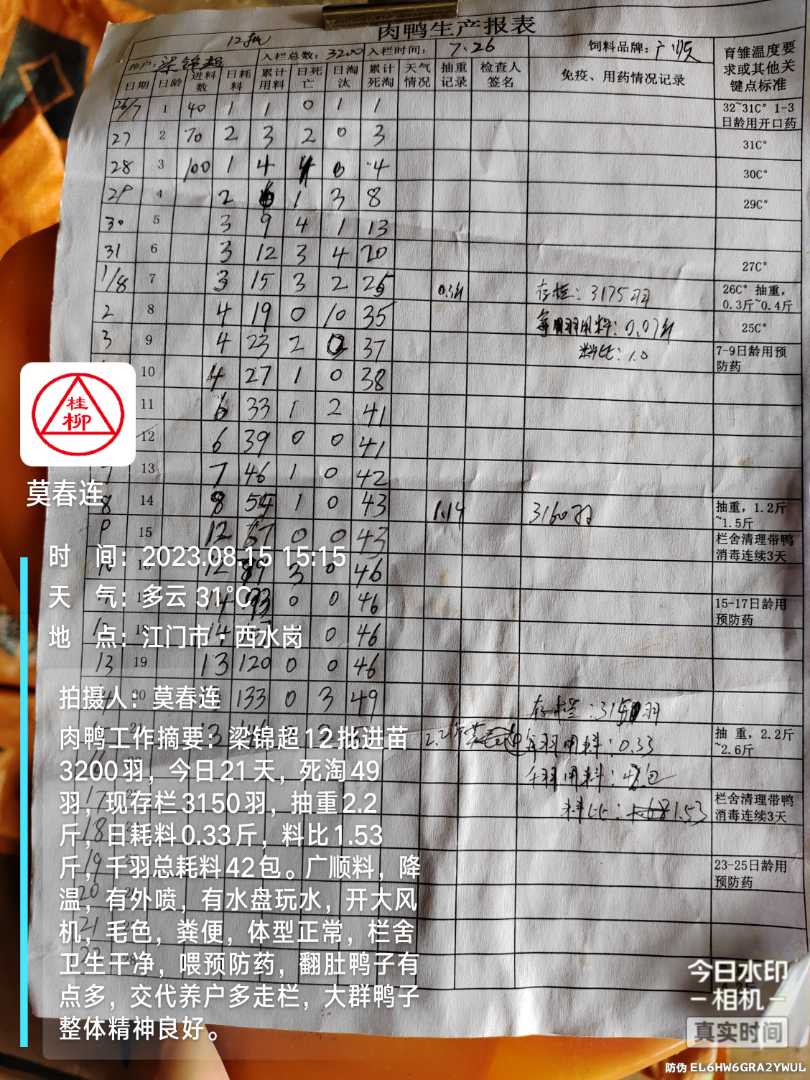 肉鸭生产报表
12批 入栏总数: 3200 入栏时间: 7.26 饲料品牌: 广顺
养户: 梁锦超
日期 日龄 进料数 日耗料 累计用料 日死亡 日淘汰 累计死淘 天气情况 抽重记录 检查人签名 免疫、用药情况记录 育雏温度要求或其他关键点标准
26/7 1 40 1 1 0 1 1 32~31C° 1-3日龄用开口药
27 2 70 2 3 2 0 3 31C°
28 3 100 1 4 4 0 4 30C°
29 4 2 6 1 3 8 29C°
30 5 3 9 4 1 13
31 6 3 12 3 4 20 27C°
1/8 7 3 15 3 2 25 存栏: 3175羽 26C° 抽重,0.3斤~0.4斤
2 8 4 19 0 10 35 每日羽用料: 0.07斤 25C°
3 9 4 23 2 0 37 料比: 1.0 7-9日龄用预防药
10 4 27 1 0 38
11 6 33 1 2 41
12 6 39 0 0 41
7 13 7 46 1 0 42
8 14 8 54 1 0 43 1.14 3160羽 抽重,1.2斤~1.5斤
9 15 12 67 0 0 43 栏舍清理带鸭消毒连续3天
12 3 0 46
0 0 46 15-17日龄用预防药
0 0 46
13 19 13 120 0 0 46
20 133 0 3 49 存栏: 羽
13 2.2斤 每羽用料: 0.33 抽 重,2.2斤~2.6斤
千羽用料: 包
17 料比: 1.53 栏舍清理带鸭消毒连续3天
18
19 23-25日龄用预防药
20
21
桂柳
莫春连
时 间: 2023.08.15 15:15
天 气: 多云 31℃
地 点: 江门市·西水岗
拍摄人: 莫春连
肉鸭工作摘要: 梁锦超12批进苗
3200羽，今日21天，死淘49
羽，现存栏3150羽，抽重2.2
斤，日耗料0.33斤，料比1.53
斤，千羽总耗料42包。广顺料，降
温，有外喷，有水盘玩水，开大风
机，毛色，粪便，体型正常，栏舍
卫生干净，喂预防药，翻肚鸭子有
点多，交代养户多走栏，大群鸭子
整体精神良好。
今日水印
相机
真实时间
防伪 EL6HW6GRA2YWUL